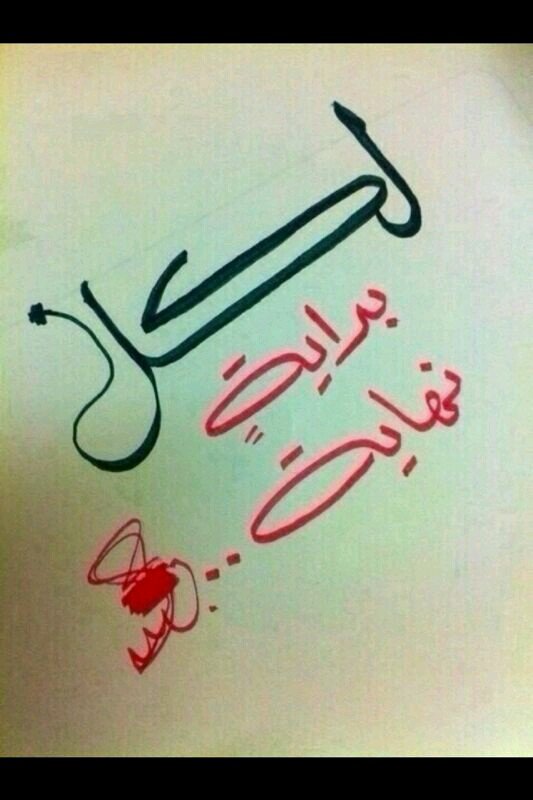 لكل
بدايةٍ
نهاية ..